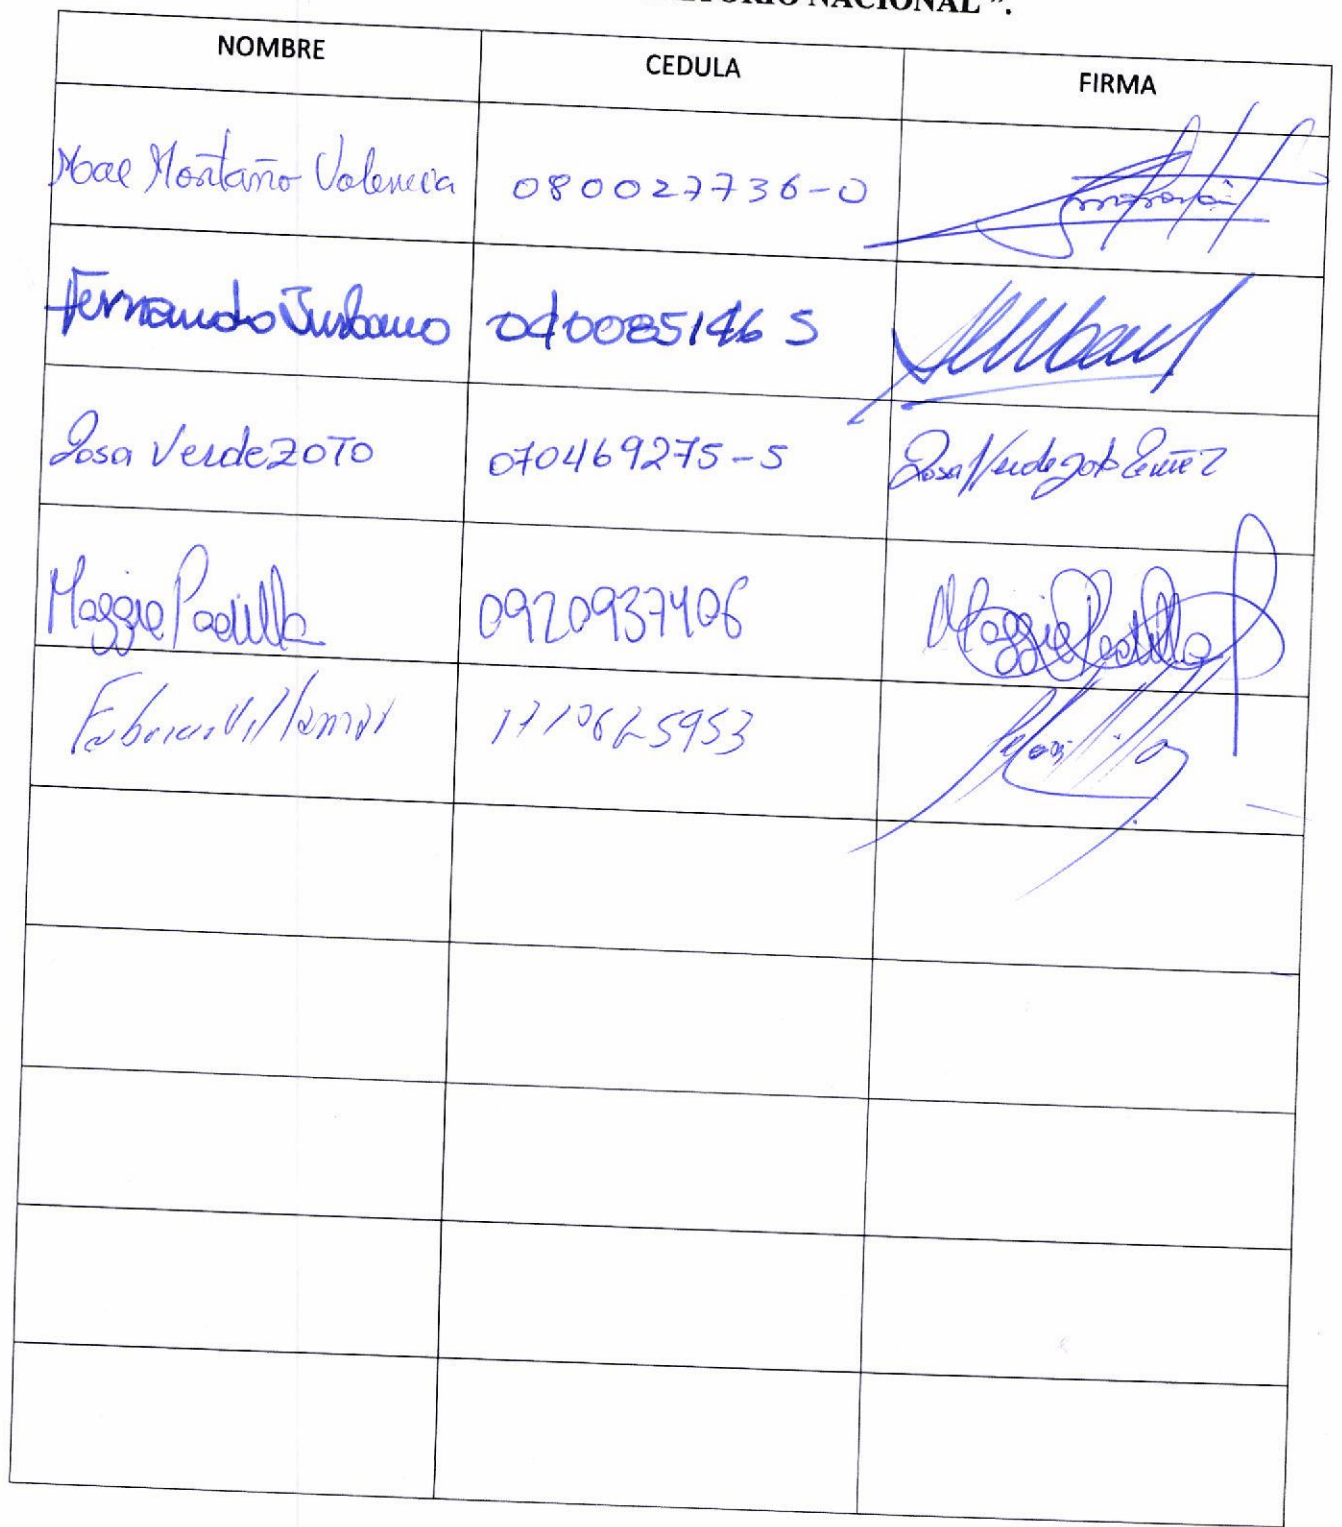 NACIONAL ”.
NOMBRE CEDULA FIRMA
Mae Montaño Valencia 080027736-0
Fernando Burbano 0400851465
Rosa Verdezoto 070469275-5 Rosa Verdezoto
Maggie Padilla 0920937406 Maggie Padilla
Villamar